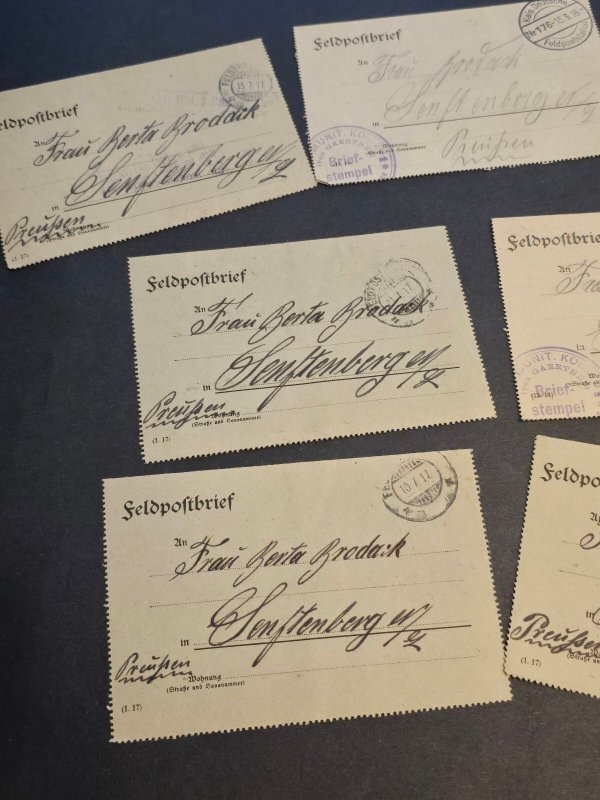 Feldpostbrief
15.7.17.
An
Frau Berta Brodack
in Senftenberg N/L
Preußen
(Straße und Hausnummer)
(I. 17)
Feldpostbrief
Kais. Deutsche
Nr 176 - 15.3.16
Feldpost
An
Frau Brodack
in Senftenberg N/L
Wohnung
(Straße und Hausnummer)
Preußen
MUNIT. KOL.
GAERTNER
Brief-
stempel
Feldpostbrief
An
Frau Berta Brodack
in Senftenberg N/L
Preußen
Wohnung
(Straße und Hausnummer)
(I. 17)
An
Fra
in
MUNIT. KO
GAERTN
Brief-
stempel
Feldpostbrief
10.7.17.
An
Frau Berta Brodack
in Senftenberg N/L
Preußen
Wohnung
(Straße und Hausnummer)
(I. 17)
Feldpostbrief
in
Preußen
(I. 17)